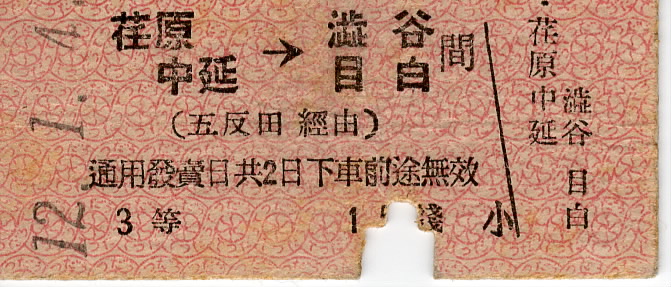 荏原
中延 → 澁谷
目白 間
(五反田 經由)
通用發賣日共2日下車前途無效
3等
錢
小
荏原中延
澁谷
目白
12. 1. 4